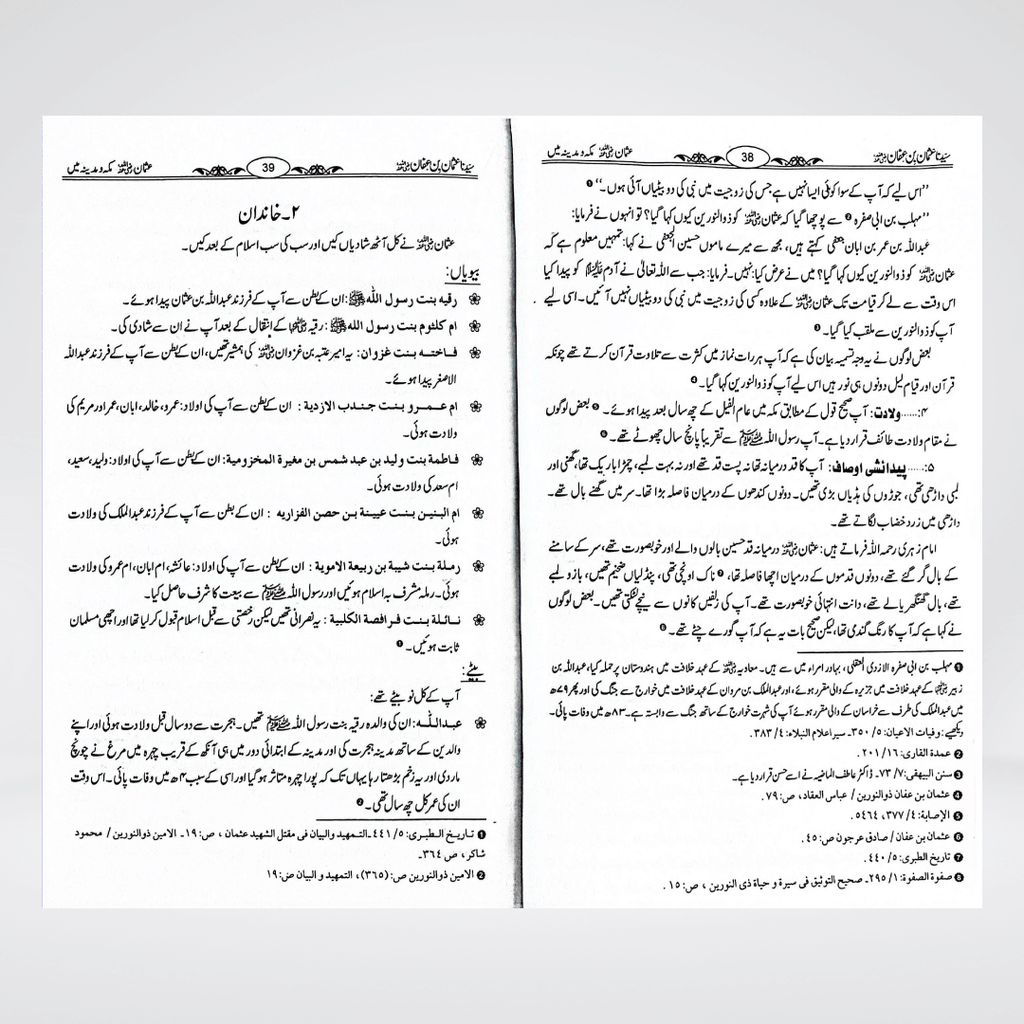 سیّدنا عثمان بن عفان رضی اللہ عنہ 38 عثمان رضی اللہ عنہ مکہ و مدینہ میں
’’اس لیے کہ آپ کے سوا کوئی ایسا نہیں ہے جس کی زوجیت میں نبی کی دو بیٹیاں آئی ہوں۔‘‘ ❶
’’مہلب بن ابی صفرہ ❷ سے پوچھا گیا کہ عثمان رضی اللہ عنہ کو ذوالنورین کیوں کہا گیا؟ تو انہوں نے فرمایا:
عبداللہ بن عمر بن ابان جعفی کہتے ہیں، مجھ سے میرے ماموں حسین الجعفی نے کہا: تمہیں معلوم ہے کہ
عثمان رضی اللہ عنہ کو ذوالنورین کیوں کہا گیا؟ میں نے عرض کیا: نہیں۔ فرمایا: جب سے اللہ تعالیٰ نے آدم علیہ السلام کو پیدا کیا
اس وقت سے لے کر قیامت تک عثمان رضی اللہ عنہ کے علاوہ کسی کی زوجیت میں نبی کی دو بیٹیاں نہیں آئیں۔ اسی لیے
آپ کو ذوالنورین سے ملقب کیا گیا۔ ❸
بعض لوگوں نے یہ وجہ تسمیہ بیان کی ہے کہ آپ ہر رات نماز میں کثرت سے تلاوت قرآن کرتے تھے چونکہ
قرآن اور قیام لیل دونوں ہی نور ہیں اس لیے آپ کو ذوالنورین کہا گیا۔ ❹
۴:......ولادت: آپ صحیح قول کے مطابق مکہ میں عام الفیل کے چھ سال بعد پیدا ہوئے۔ ❺ بعض لوگوں
نے مقام ولادت طائف قرار دیا ہے۔ آپ رسول اللہ ﷺ سے تقریباً پانچ سال چھوٹے تھے۔ ❻
۵:......پیدائشی اوصاف: آپ کا قد درمیانہ تھا نہ پست قد تھے اور نہ بہت لمبے، چمڑا باریک تھا، گھنی اور
لمبی داڑھی تھی، جوڑوں کی ہڈیاں بڑی تھیں۔ دونوں کندھوں کے درمیان فاصلہ بڑا تھا۔ سر میں گھنے بال تھے۔
داڑھی میں زرد خضاب لگاتے تھے۔
امام زہری رحمہ اللہ فرماتے ہیں: عثمان رضی اللہ عنہ درمیانہ قد حسین بالوں والے اور خوبصورت تھے، سر کے سامنے
کے بال گر گئے تھے، دونوں قدموں کے درمیان اچھا فاصلہ تھا، ❼ ناک اونچی تھی، پنڈلیاں ضخیم تھیں، بازو لمبے
تھے، بال گھنگھریالے تھے، دانت انتہائی خوبصورت تھے۔ آپ کی زلفیں کانوں سے نیچے لٹکتی تھیں۔ بعض لوگوں
نے کہا ہے کہ آپ کا رنگ گندمی تھا، لیکن صحیح بات یہ ہے کہ آپ گورے چٹے تھے۔ ❽
❶ مہلب بن ابی صفرہ الازدی العتقی، بہادر امراء میں سے ہیں۔ معاویہ رضی اللہ عنہ کے عہد خلافت میں ہندوستان پر حملہ کیا، عبداللہ بن
زبیر رضی اللہ عنہما کے عہد خلافت میں جزیرہ کے والی مقرر ہوئے، اور عبدالملک بن مروان کے عہد خلافت میں خوارج سے جنگ کی اور پھر ۷۹ھ
میں عبدالملک کی طرف سے خراسان کے والی مقرر ہوئے آپ کی شہرت خوارج کے ساتھ جنگ سے وابستہ ہے۔ ۸۳ھ میں وفات پائی۔
دیکھیے: وفیات الاعیان: ۵/ ۳۵۰۔ سیر اعلام النبلاء: ۴/ ۳۸۳ .
❷ عمدة القاری: ۱۶/ ۲۰۱ .
❸ سنن البیهقی: ۷/ ۷۳۔ ڈاکٹر عاطف الماضیہ نے اسے حسن قرار دیا ہے۔
❹ عثمان بن عفان ذوالنورین / عباس العقاد، ص: ۷۹ .
❺ الإصابة: ۴/ ۳۷۷، ۵۴۶۴ .
❻ عثمان بن عفان / صادق عرجون ص: ۴۵ .
❼ تاریخ الطبری: ۵/ ۴۴۰ .
❽ صفوة الصفوة: ۱/ ۲۹۵۔ صحیح التوثیق فی سیرة و حیاة ذی النورین ، ص: ۱۵ .
سیّدنا عثمان بن عفان رضی اللہ عنہ 39 عثمان رضی اللہ عنہ مکہ و مدینہ میں
۲۔ خاندان
عثمان رضی اللہ عنہ نے کل آٹھ شادیاں کیں اور سب کی سب اسلام کے بعد کیں۔
بیویاں:
رقیه بنت رسول اللّٰه ﷺ: ان کے بطن سے آپ کے فرزند عبداللہ بن عثمان پیدا ہوئے۔
ام کلثوم بنت رسول الله ﷺ: رقیہ رضی اللہ عنہا کے انتقال کے بعد آپ نے ان سے شادی کی۔
فاخته بنت غزوان: یہ امیر عتبہ بن غزوان رضی اللہ عنہ کی ہمشیر تھیں، ان کے بطن سے آپ کے فرزند عبداللہ
الاصغر پیدا ہوئے۔
ام عمرو بنت جندب الازدیة : ان کے بطن سے آپ کی اولاد: عمرو، خالد، ابان، عمر اور مریم کی
ولادت ہوئی۔
فاطمة بنت ولید بن عبد شمس بن مغیرة المخزومیة: ان کے بطن سے آپ کی اولاد: ولید، سعید،
ام سعد کی ولادت ہوئی۔
ام البنین بنت عیینة بن حصن الفزاریه : ان کے بطن سے آپ کے فرزند عبدالملک کی ولادت
ہوئی۔
رملة بنت شیبة بن ربیعة الامویة : ان کے بطن سے آپ کی اولاد: عائشہ، ام ابان، ام عمرو کی ولادت
ہوئی۔ رملہ مشرف بہ اسلام ہوئیں اور رسول اللہ ﷺ سے بیعت کا شرف حاصل کیا۔
نائلة بنت فرافصة الکلبیة : یہ نصرانی تھیں لیکن رخصتی سے قبل اسلام قبول کر لیا تھا اور اچھی مسلمان
ثابت ہوئیں۔ ❶
بیٹے:
آپ کے کل نو بیٹے تھے:
عبداللّٰه: ان کی والدہ رقیہ بنت رسول اللہ ﷺ تھیں۔ ہجرت سے دو سال قبل ولادت ہوئی اور اپنے
والدین کے ساتھ مدینہ ہجرت کی اور مدینہ کے ابتدائی دور میں ہی آنکھ کے قریب چہرہ میں مرغ نے چونچ
مار دی اور یہ زخم بڑھتا رہا یہاں تک کہ پورا چہرہ متاثر ہو گیا اور اسی کے سبب ۴ھ میں وفات پائی۔ اس وقت
ان کی عمر کل چھ سال تھی۔ ❷
❶ تاریخ الطبری: ۵/ ۴۴۱۔ التمهید والبیان فی مقتل الشهید عثمان ، ص: ۱۹۔ الامین ذوالنورین / محمود
شاکر ، ص ۳۶۴۔
❷ الامین ذوالنورین ص: (۳۶۵)، التمهید و البیان ص: ۱۹